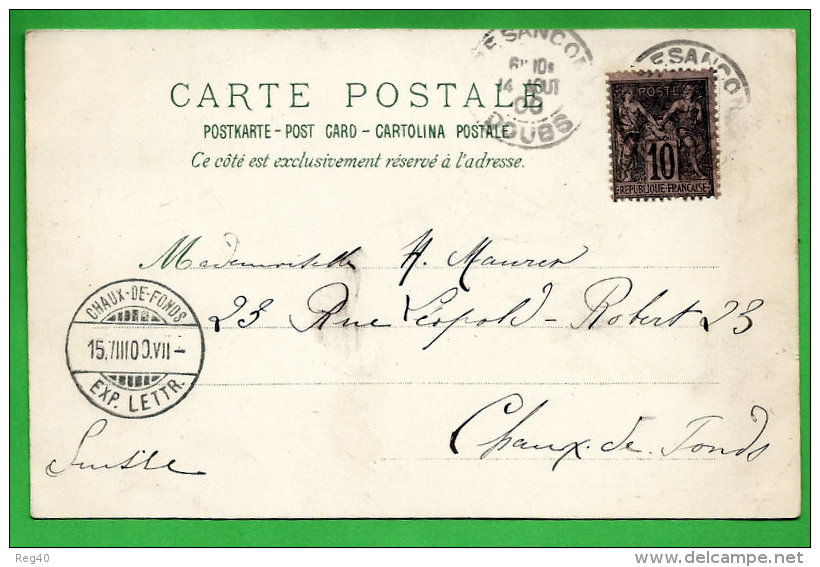 CARTE POSTALE
POSTKARTE - POST CARD - CARTOLINA POSTALE
Ce côté est exclusivement réservé à l'adresse.
BESANCON
14 AOUT
00
DOUBS
BESANCON
POSTE
10
REPUBLIQUE FRANÇAISE
Mademoiselle H. Maurer
23 Rue Léopold-Robert 23
CHAUX-DE-FONDS
15.VIII00.VII-
EXP. LETTR.
Chaux.de.Fonds
Suisse
Reg40
delcampe.net